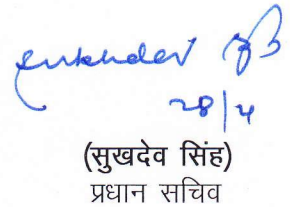 Sukhdev
28/4
(सुखदेव सिंह)
प्रधान सचिव